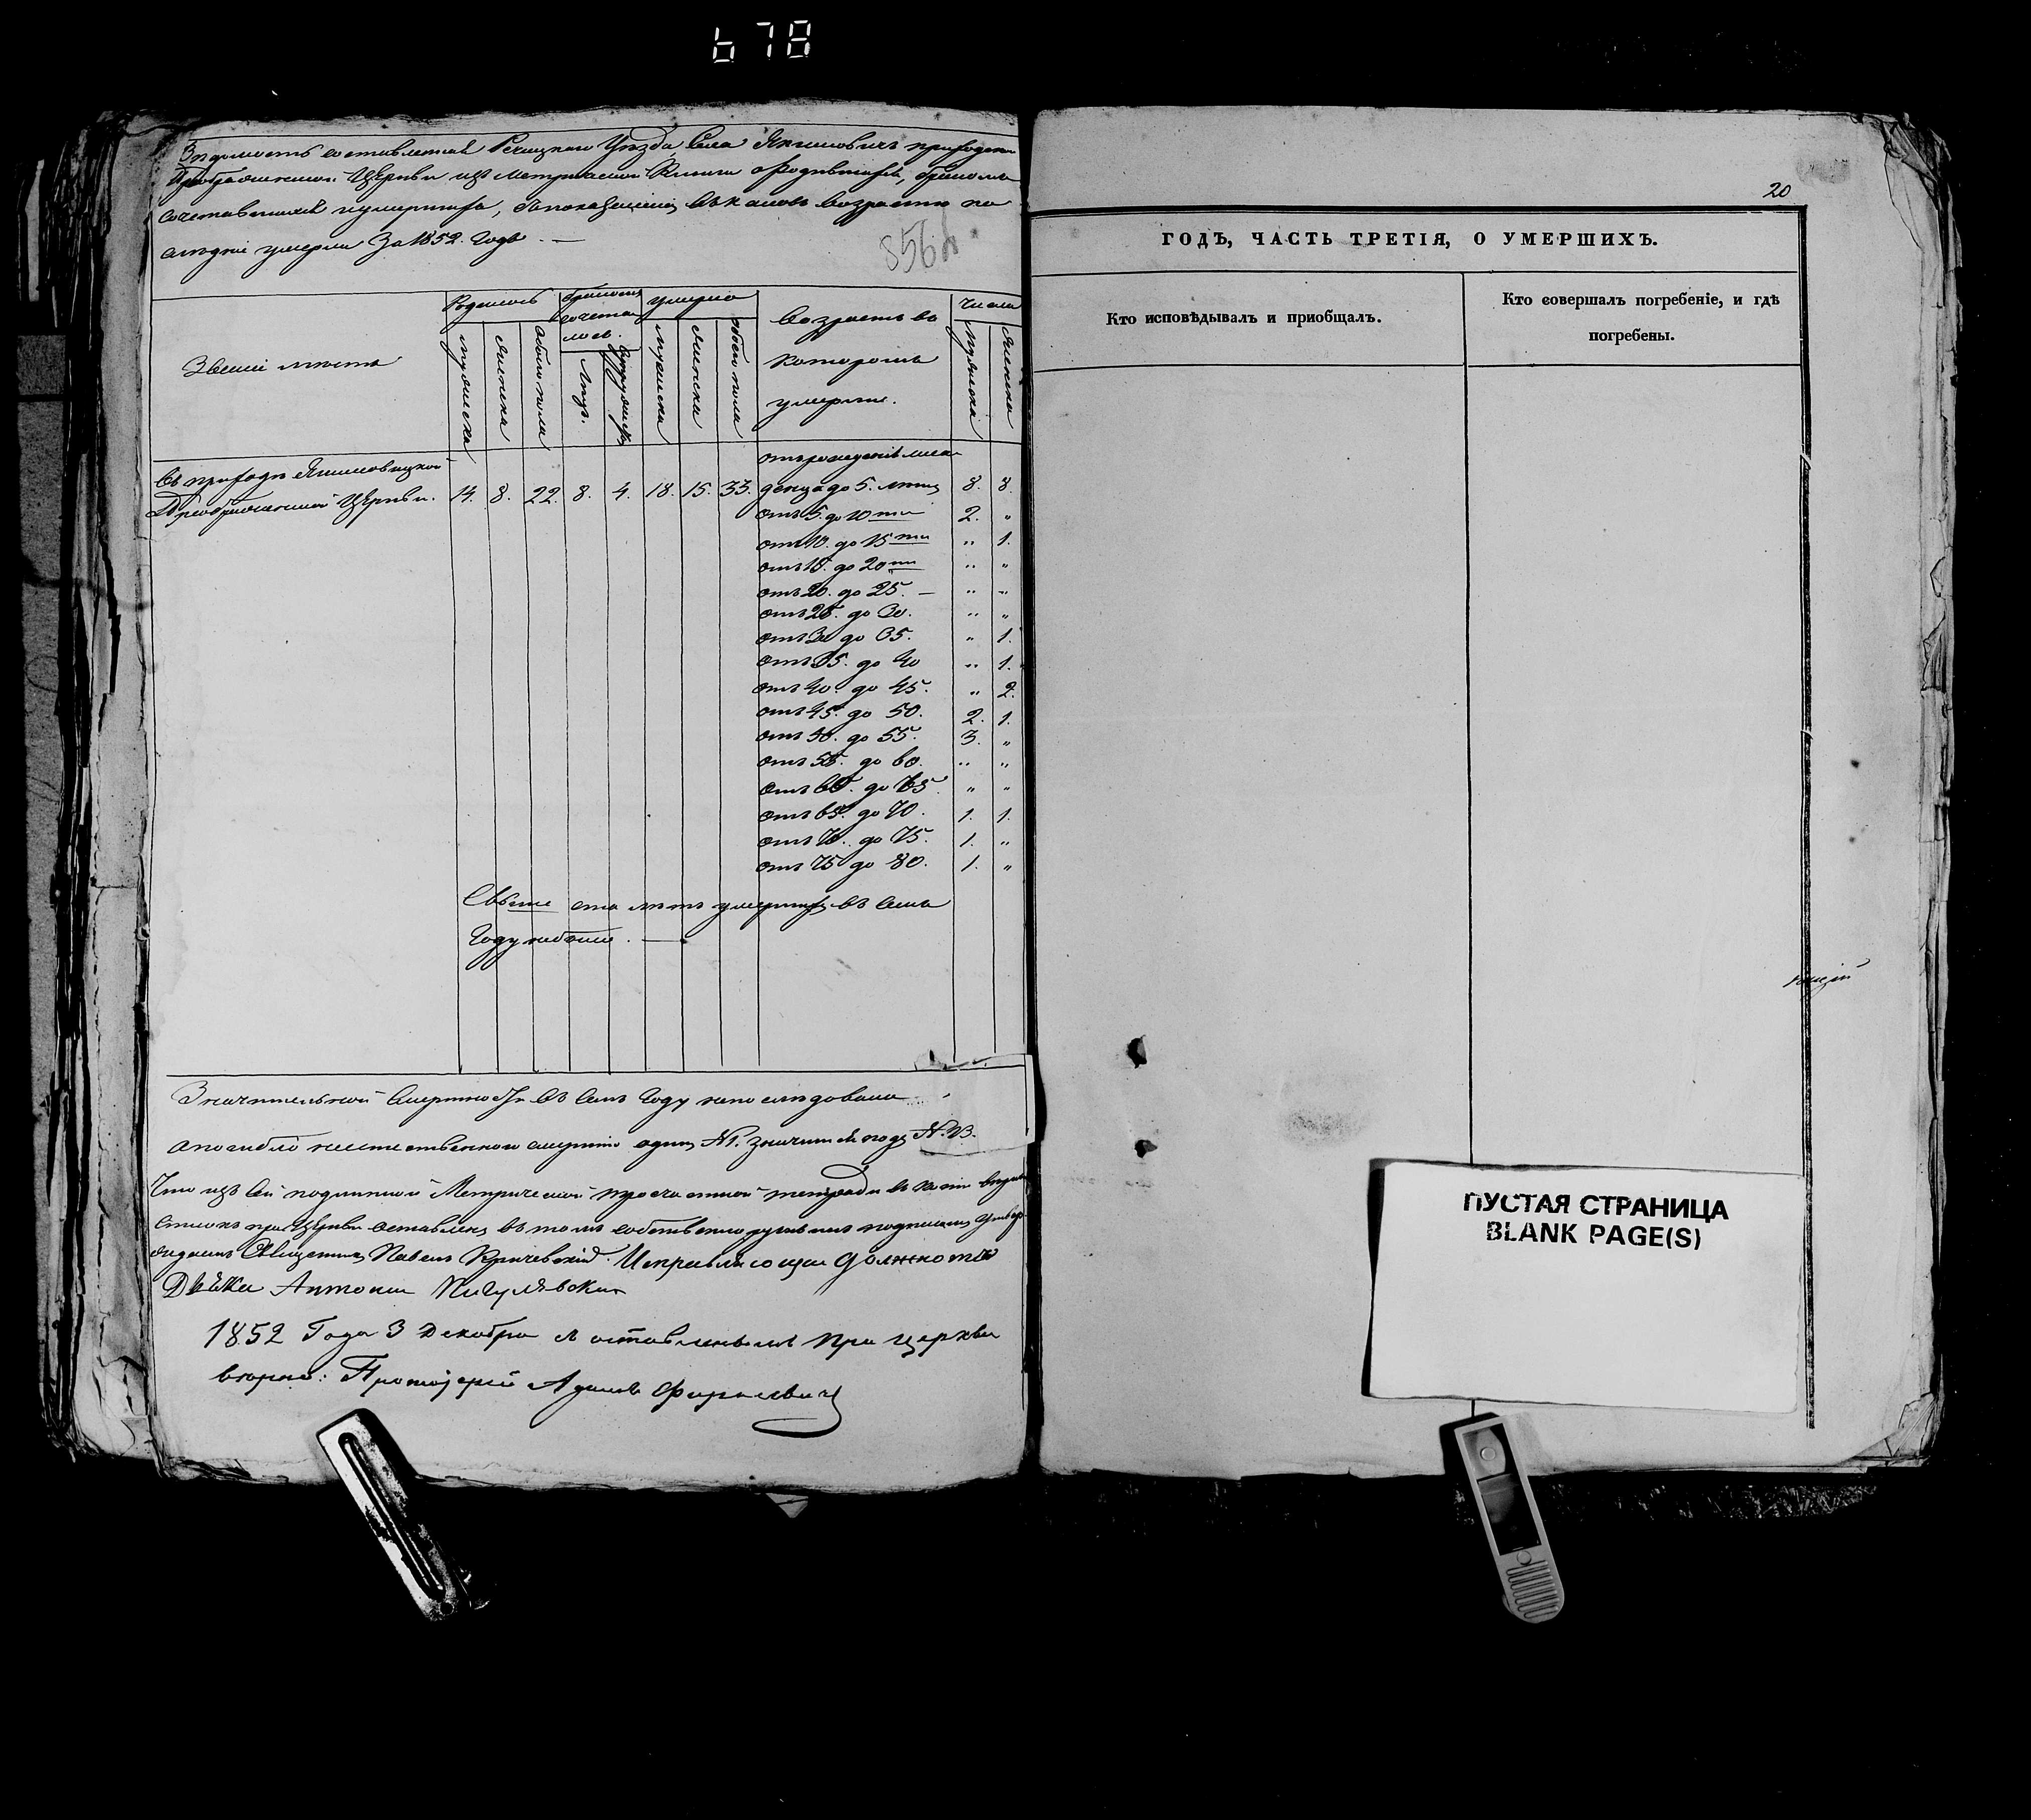 678
Вѣдомость составленная Речицкаго Уѣзда, Села Якимовичъ приходской
Преображенской Церкви изъ Метрической Книги о Родившихся, бракомъ
сочетавшихся и умершихъ, съ показаніемъ въ какомъ возрастѣ по
слѣдніе умерли За 1852. Годъ. —
856
Званіе мѣста
Родилось
мужеска
женска
обоего пола
бракомъ сочеталось.
лицъ.
супружествъ
умерло
мужеска
женска
обоего пола
Возрастъ въ
которомъ
умерли.
Числа
мужеска
женска
Въ приходѣ Якимовицкой
Преображенской Церкви. 14. 8. 22. 8. 4. 18. 15. 33.
отъ рожденія мла
денца до 5. лѣтъ 8. 8.
отъ 5. до 10ти 2. "
отъ 10. до 15ти " 1.
отъ 15. до 20ти " "
отъ 20. до 25. — " "
отъ 25. до 30. " "
отъ 30 до 35. " 1.
отъ 35. до 40 " 1.
отъ 40. до 45. " 2.
отъ 45. до 50. 2. 1.
отъ 50. до 55. 3. "
отъ 55. до 60. " "
отъ 60. до 65. " "
отъ 65. до 70. 1. 1.
отъ 70. до 75. 1. "
отъ 75 до 80. 1. "
Свыше ста лѣтъ умершихъ въ семъ
Году небыло. —
Значительной Смертности въ семъ Году непослѣдовало
а погибло неестественною смертію одинъ значится подъ №.
Что изъ сей подлинной Метрической тетради въ
списокъ при Церкви оставленъ въ томъ собственноручнымъ подписомъ
Священникъ Павелъ Кричевскій. Исправляющи должность
Дьячка Антони Пигулевски
1852 Года 3 Декабря с оставленнымъ при церкви
вѣрно: Протоіерей Адамъ
20
ГОДЪ, ЧАСТЬ ТРЕТІЯ, О УМЕРШИХЪ.
Кто исповѣдывалъ и приобщалъ.
Кто совершалъ погребеніе, и гдѣ
погребены.
ПУСТАЯ СТРАНИЦА
BLANK PAGE(S)